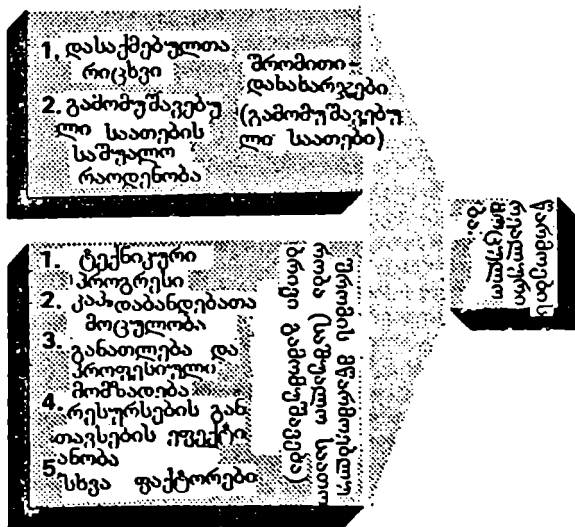 1. დასაქმებულთა
რიცხვი
2. გამომუშავებუ
ლი საათების
საშუალო
რაოდენობა
შრომითი-
დახახარჯები
(გამომუშავებუ
ლი საათები)
1. ტექნიკური
პროგრესი
2. კაპდაბანდებათა
მოცულობა
3. განათლება და
პროფესიული
მომზადება
4. რესურსების გან
თავსების ეფექტი
ანობა
5. სხვა ფაქტორები
შრომის მწარმოებლუ
რობა (საშუალო საათო
ბრივი გამომუშავება)
წარმოების
რეალური
მოცულო
ბა.